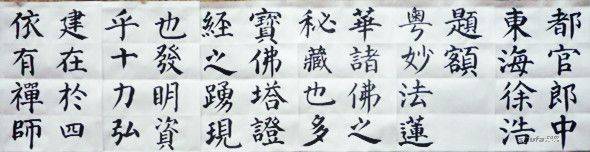 都官郎中
東海徐浩
題額
粵妙法蓮
華諸佛之
秘藏也多
寶佛塔證
經之踴現
也發明資
乎十力弘
建在於四
依有禪師